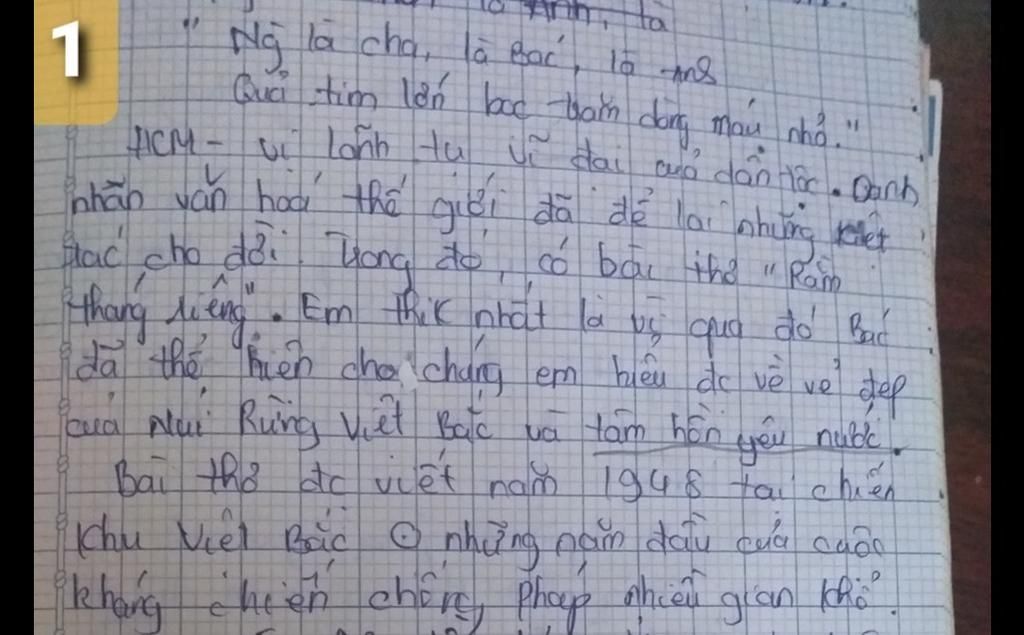 1
Anh, ta
" Ng là cha, là Bác, là anh
Quả tim lớn bọc trăm dòng máu nhỏ."
HCM - vị lãnh tụ vĩ đại của dân tộc. Danh
nhân văn hoá thế giới đã để lại những kiệt
tác cho đời. Trong đó, có bài thơ "Rằm
tháng giêng". Em thik nhất là vì qua đó Bác
đã thể hiện cho chúng em hiểu đc về vẻ đẹp
của Núi Rừng Việt Bắc và tâm hồn yêu nước.
Bài thơ đc viết năm 1948 tại chiến
khu Việt Bắc ở những năm đầu của cuộc
kháng chiến chống Pháp nhiều gian khổ.